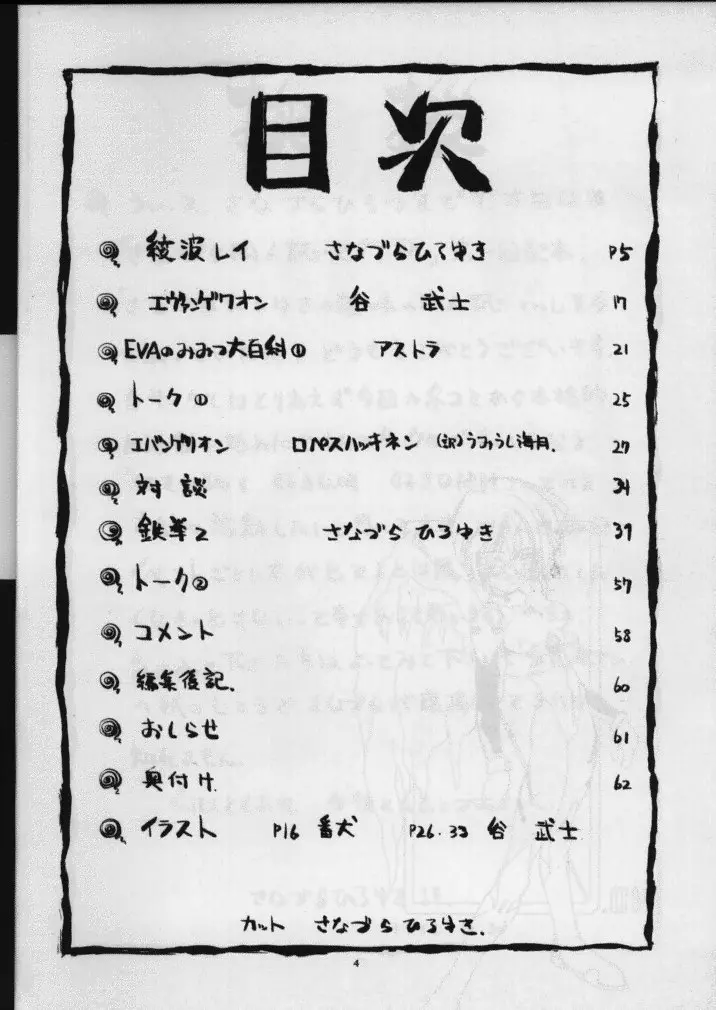 目次
綾波レイ さなづらひろゆき P5
エヴァンゲリオン 谷 武士 17
EVAのみみつ大百科① アストラ 21
トーク① 25
エバンゲリオン ロペスハッキネン (訳)うみうし海月. 27
対談 34
鉄拳2 さなづらひろゆき 39
トーク② 57
コメント 58
編集後記. 60
おしらせ 61
奥付け 62
イラスト P16 番犬 P26.33 谷 武士
カット さなづらひろゆき.
4